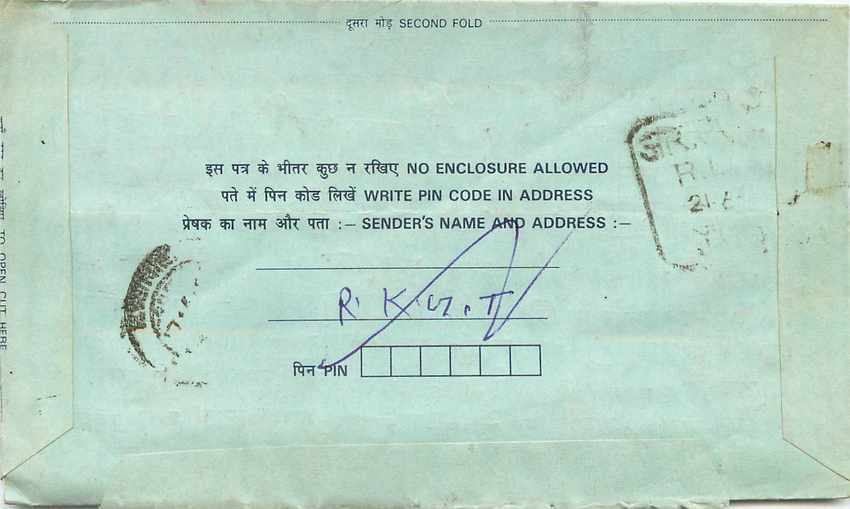 दूसरा मोड़ SECOND FOLD
इस पत्र के भीतर कुछ न रखिए NO ENCLOSURE ALLOWED
पते में पिन कोड लिखें WRITE PIN CODE IN ADDRESS
प्रेषक का नाम और पता :— SENDER'S NAME AND ADDRESS :—
पिन PIN
TO OPEN CUT HERE